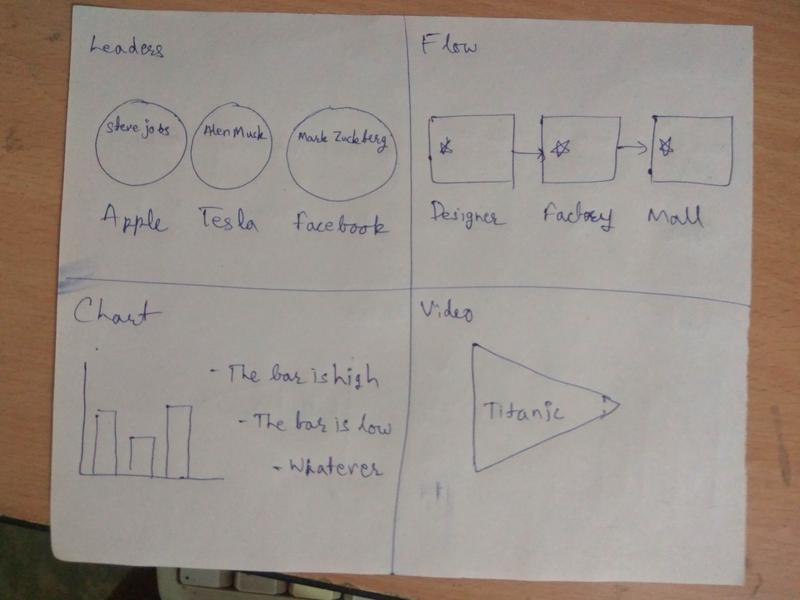 Leaders
Steve jobs
Alen Musk
Mark Zuckberg
Apple
Tesla
Facebook
Flow
Designer
Factory
Mall
Chart
- The bar is high
- The bar is low
- Whatever
Video
Titanic